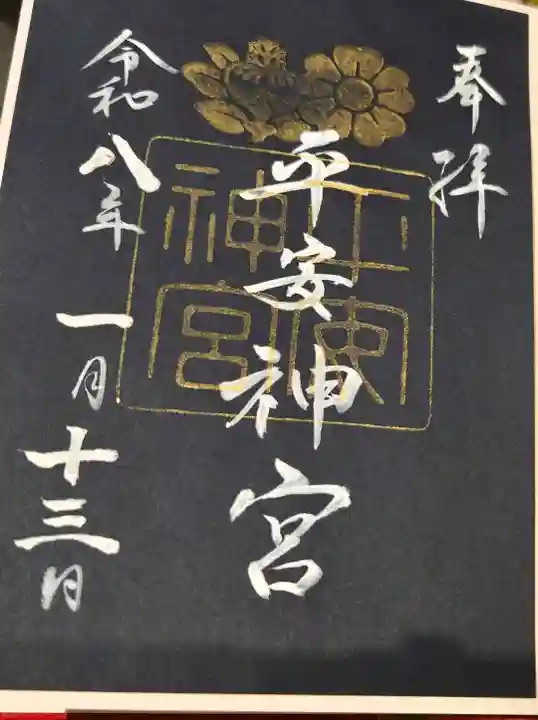 奉拝
平安神宮
平安神宮
令和八年
一月十三日